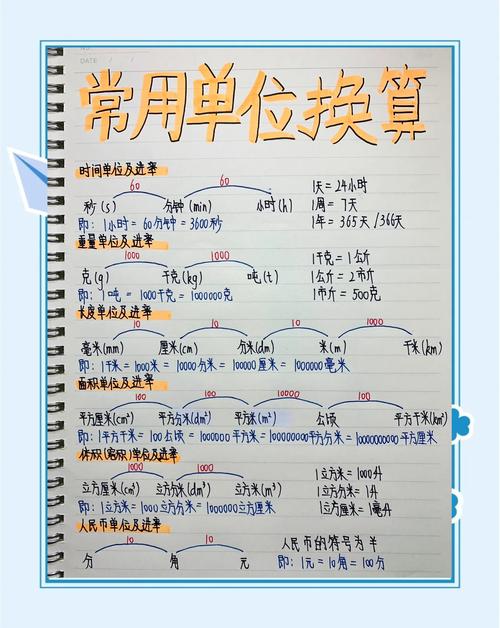 NO.
DATE / /
常用单位换算
时间单位及进率
60 60
秒(s) 分钟(min) 小时(h)
即:1小时=60分钟=3600秒
1天=24小时
1周=7天
1年=365天/366天
重量单位及进率
1000 1000
克(g) 千克(kg) 吨(t)
即:1吨=1000千克=1000000克
1千克=1公斤
1公斤=2市斤
1市斤=500克
长度单位及进率
10 10 10 1000
毫米(mm) 厘米(cm) 分米(dm) 米(m) 千米(km)
即:1千米=1000米=10000分米=100000厘米=1000000毫米
面积单位及进率
100 100 10000 100
平方厘米(cm²) 平方分米(dm²) 平方米(m²) 公顷 平方千米(km²)
即:1平方千米=100公顷=1000000平方米=100000000平方分米=10000000000平方厘米
体积(容积)单位及进率
1000 1000
立方厘米(cm³) 立方分米(dm³) 立方米(m³)
即:1立方米=1000立方分米=1000000立方厘米
1立方米=1000升
1立方分米=1升
1立方厘米=1毫升
人民币单位及进率
10 10
分 角 元
人民币的符号为¥
即:1元=10角=100分